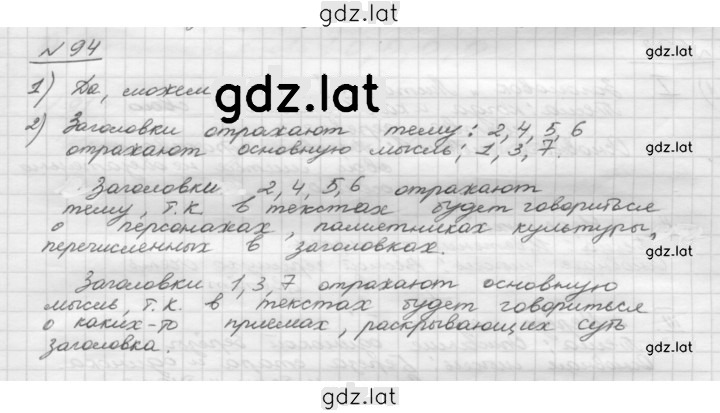 gdz.lat
№ 94
gdz.lat
1) Да, можем
gdz.lat
2) Заголовки отражают тему: 2, 4, 5, 6
отражают основную мысль; 1, 3, 7.
gdz.lat
Заголовки 2, 4, 5, 6 отражают
тему, т.к. в текстах будет говориться
о персонажах, памятниках культуры,
gdz.lat
перечисленных в заголовках.
Заголовки 1, 3, 7 отражают основную
мысль, т.к. в текстах будет говориться
о каких-то приемах, раскрывающих суть
заголовка.
gdz.lat
gdz.lat